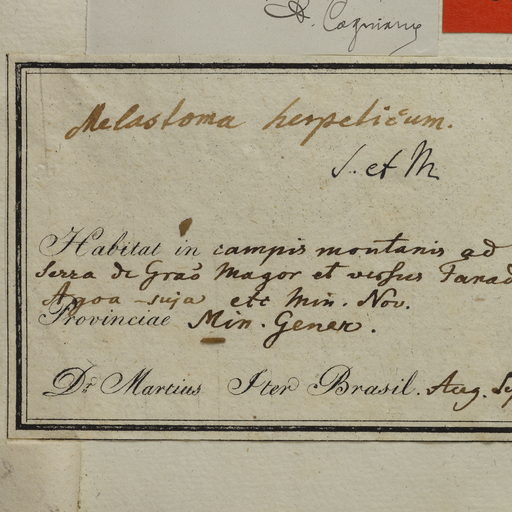 R. Cogniaux
Melastoma herpeticum.
S. et M
Habitat in campis montanis ad
Serra de Graõ Magor et versus Tanad
Agoa-suja etc Min. Nov.
Provinciae Min. Gener.
Dr. Martius Iter Brasil. Aug. Se